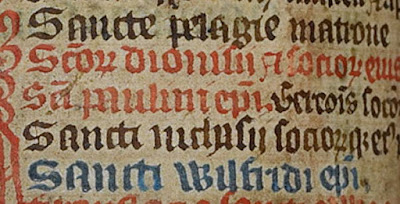 Sancte pelagie matrone
Scōꝝ dionisii ⁊ socioꝝ eius
Sci paulini epi. Gereoīs socoꝝ
Sancti nichasii socioꝝq; eiꝰ
Sancti Wilfridi epi.